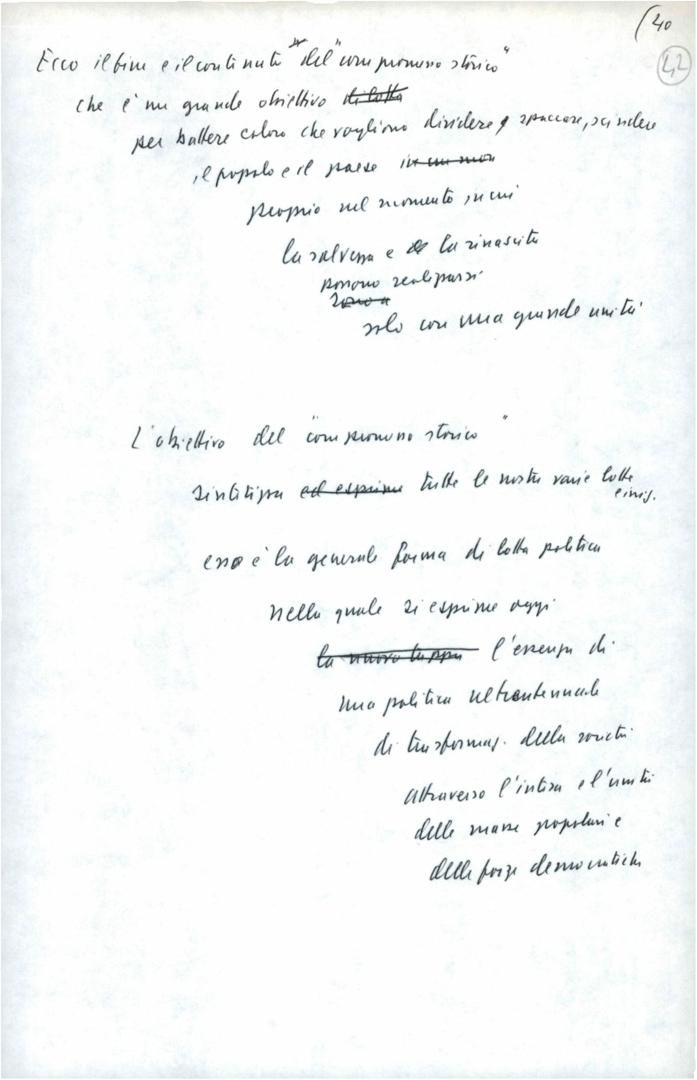 40
42
Ecco il fine e il contenuto del "compromesso storico"
che è un grande obiettivo di lotta
per battere coloro che vogliono dividere, spaccare, scindere
il popolo e il paese
proprio nel momento in cui
la salvezza e la rinascita
possono realizzarsi
sono
solo con una grande unità
L'obiettivo del "compromesso storico"
sintetizza ed esprime tutte le nostre varie lotte
esso è la generale forma di lotta politica
nella quale si esprime oggi
la nuova tappa l'essenza di
una politica ultratrentennale
di trasformaz. della società
attraverso l'intesa e l'unità
delle masse popolari e
delle forze democratiche